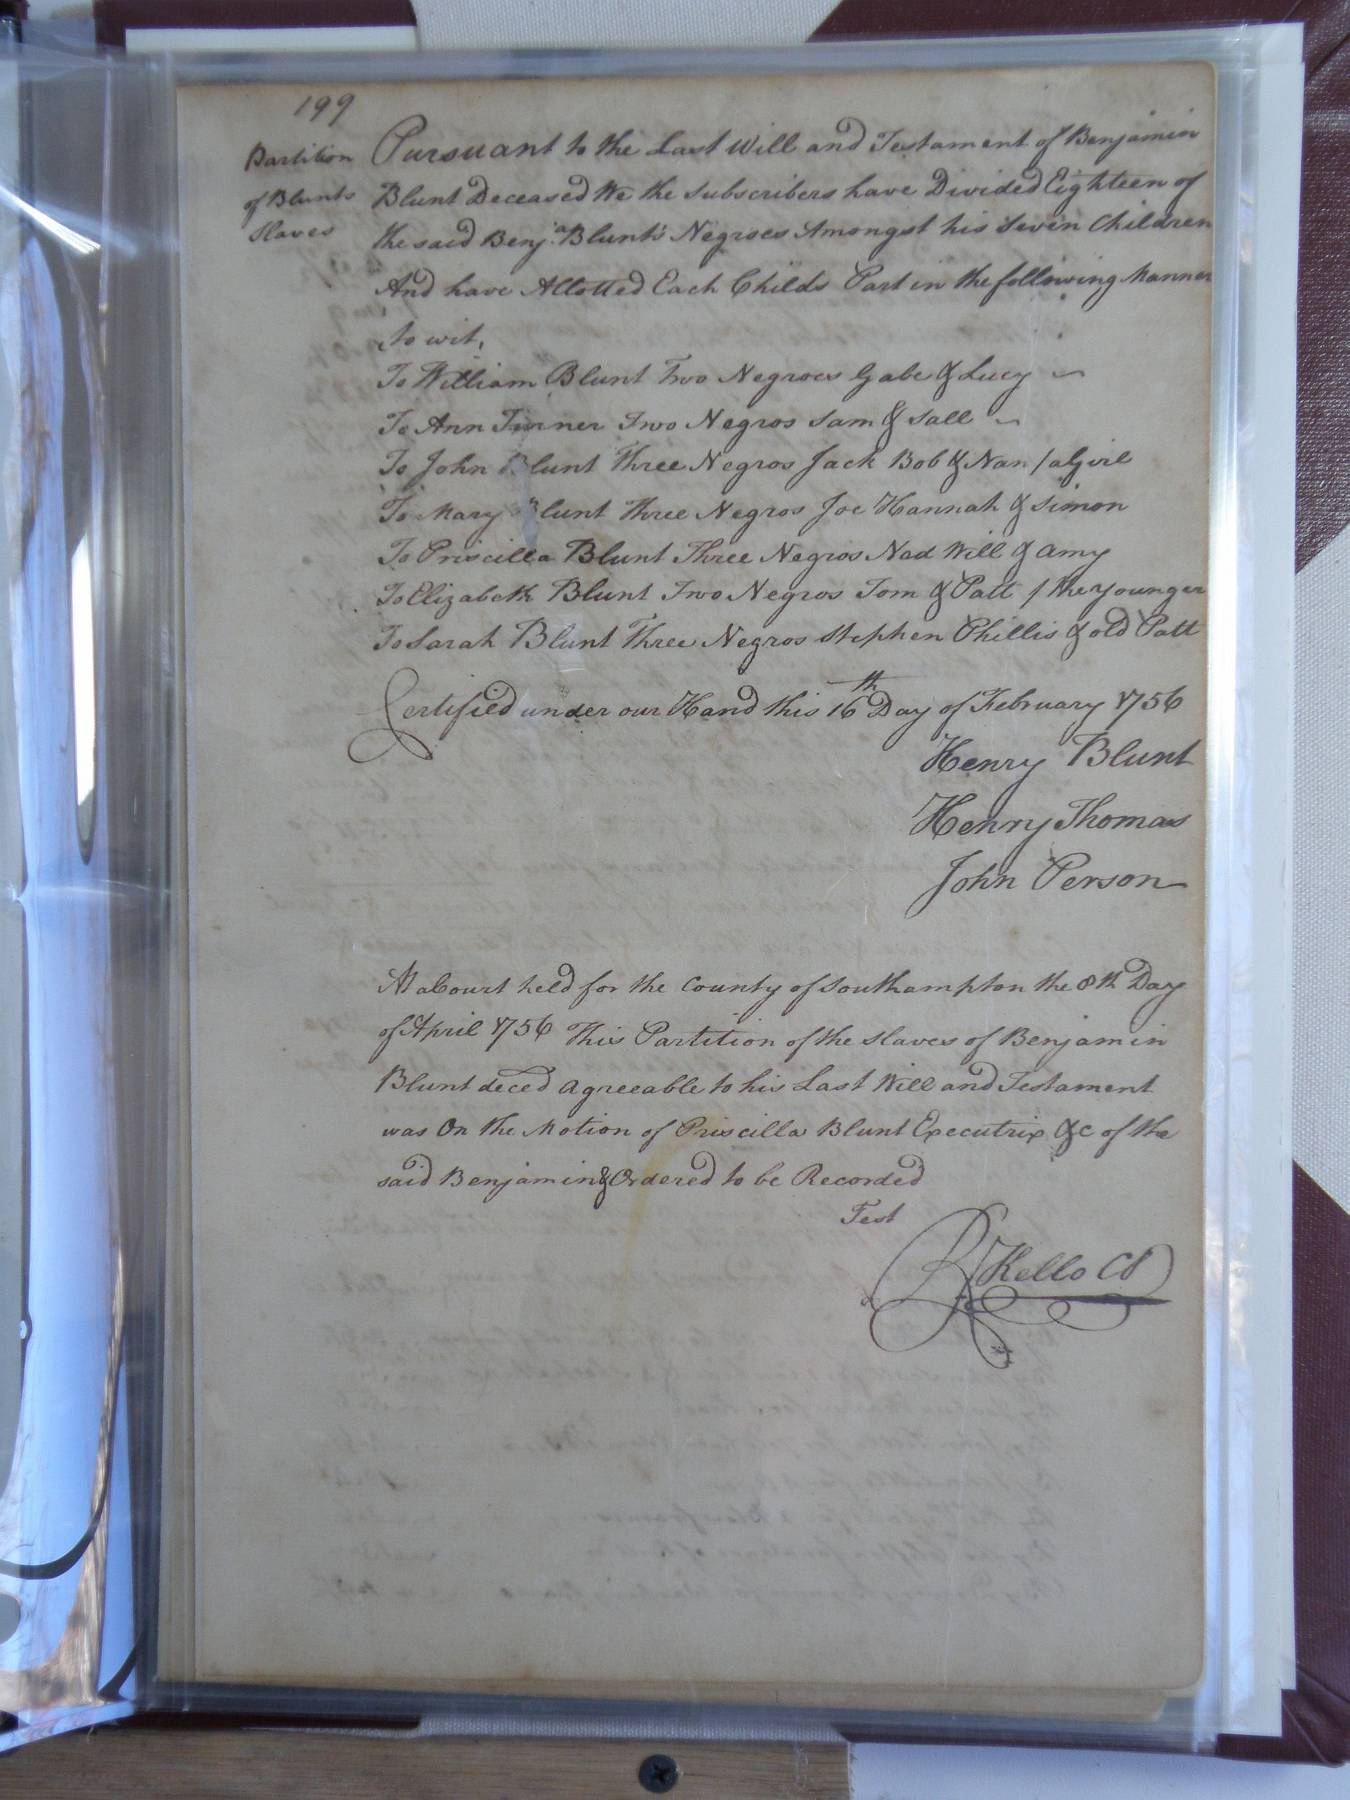 199
Partition
of Blunts
Slaves
Pursuant to the Last Will and Testament of Benjamin
Blunt Deceased We the Subscribers have Divided Eighteen of
the said Benj.a Blunt's Negroes Amongst his Seven Children
And have Allotted Each Childs Part in the following Manner
to wit,
To William Blunt Two Negroes Gabe & Lucy
To Ann Turner Two Negros Sam & Sall
To John Blunt Three Negros Jack Bob & Nan / a Girl
To Mary Blunt Three Negros Joe Hannah & Simon
To Priscilla Blunt Three Negros Ned Will & Amy
To Elizabeth Blunt Two Negros Tom & Patt / the younger
To Sarah Blunt Three Negros Stephen Phillis & old Patt
Certified under our Hand this 16th Day of February 1756
Henry Blunt
Henry Thomas
John Person
At a Court held for the County of Southampton the 8th Day
of April 1756 This Partition of the Slaves of Benjamin
Blunt deced agreeable to his Last Will and Testament
was On the Motion of Priscilla Blunt Executrix &c of the
said Benjamin & Ordered to be Recorded
Test
R Kello CS